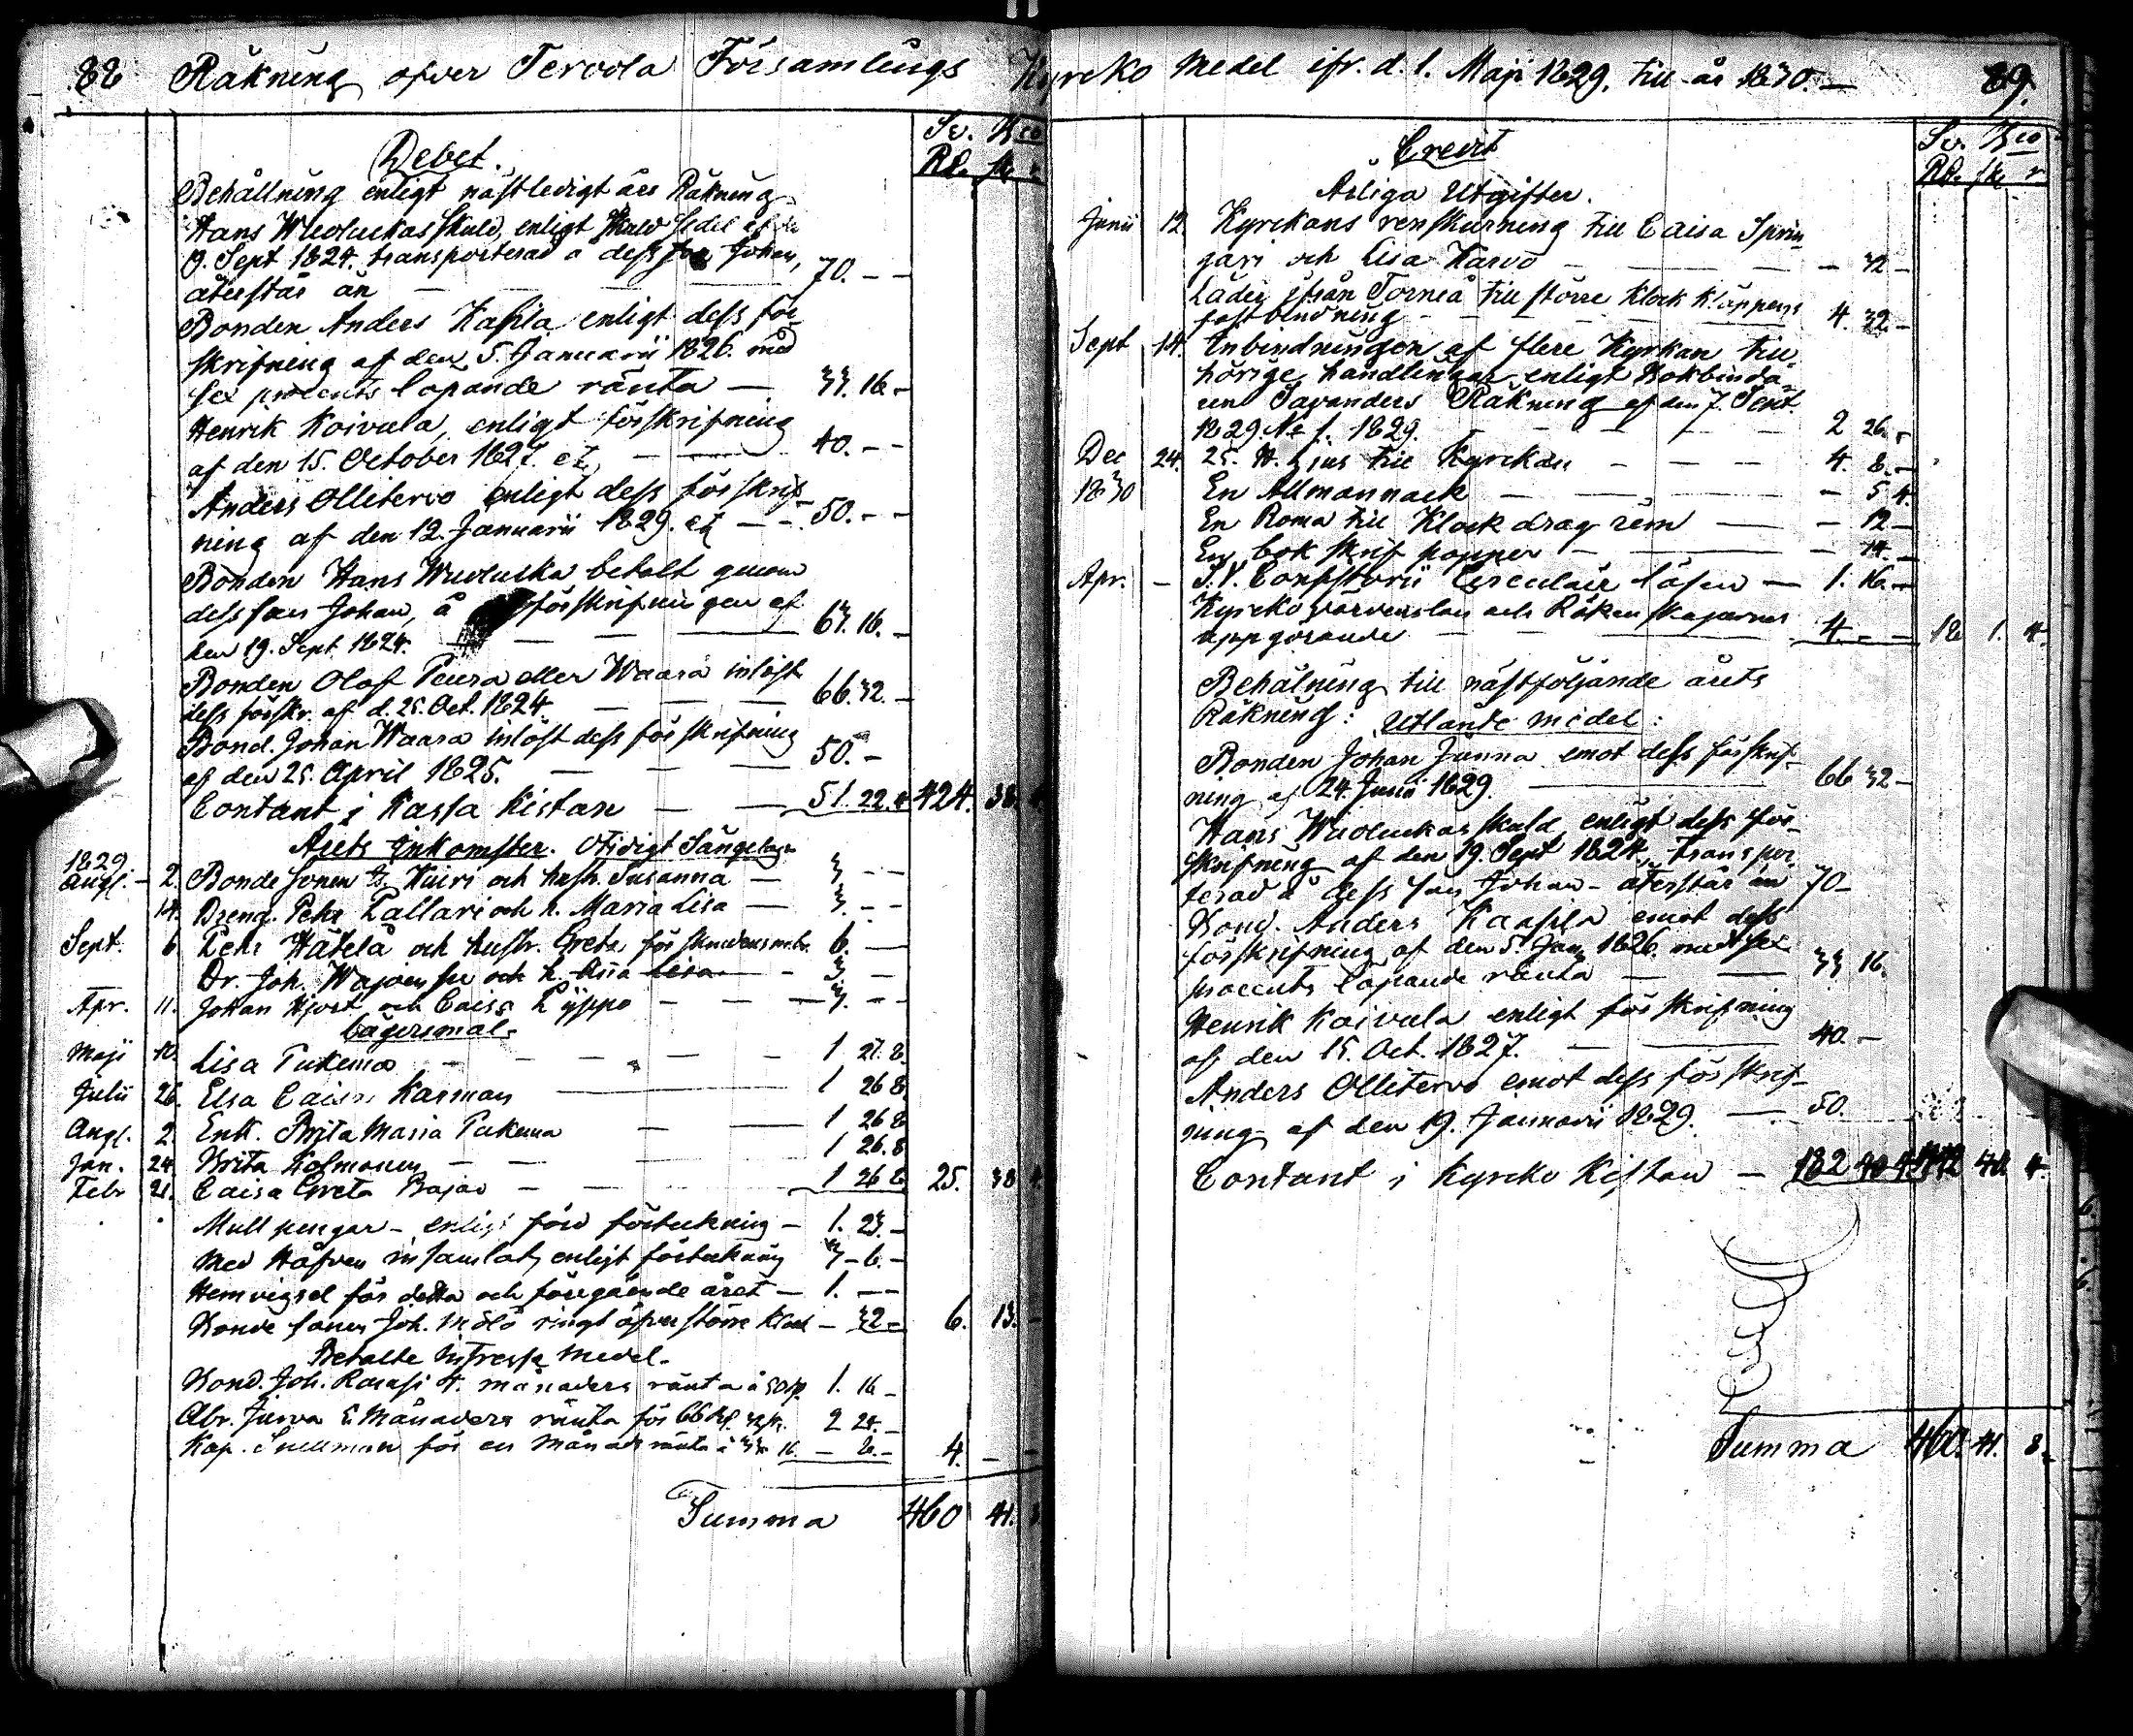 88 Räkning öfver Tervola Församlings
Sv. Bco
Debet.
Rd. sk. r
Behållning enligt nästledigt års Räkning
Hans Wuoluckas skuld, enligt skuldsedel af den
19. Sept 1824. transporterad å dess son Johan,
återstår än — 70. - -
Bonden Anders Kapila enligt dess för
skrifning af den 5. Januarii 1826. med
sex procents löpande ränta — 33. 16. -
Henrik Koivula, enligt förskrifning
af den 15. October 1827. — 40. - -
Anders Ollitervo enligt dess förskrif
ning af den 12. Januarii 1829. — 50. - -
Bonden Hans Wuolucka betalt genom
dess son Johan, å förskrifningen af
den 19. Sept. 1824. — 63. 16. -
Bonden Olof Peura eller Waara inlöst
dess förskr. af d. 25. Oct. 1824. — 66. 32. -
Bond. Johan Waara inlöst dess förskrifning
af den 25. April 1825. — 50. -
Contant i Kassa Kistan — 51. 22. 4 424. 38. 4
Årets Inkomster. Otidigt Sängelag
1829
Aug. - 2. Bonde sonen Kuiri och hust. Susanna — 3 - -
14. Dreng. Pehr Lallari och h. Maria Lisa — 3. - -
Sept. 6 Pehr Hätelä och hustr. Greta 6. —
Dr. Joh. och h. Lisa — 3 —
Apr. 11. Johan Hjort och Caisa Lyppo — 3. - -
Lägersmål
Maji 10. Lisa Tukema — 1 27. 8.
Julii 26. Elsa Caisa Karman — 1 26 8
Aug. 2. Enk. Brita Maria Tukema — 1 26 8
Jan. 24 Brita Kosmonen — 1 26. 8
Febr 21. Caisa Greta Pajar — 1 26 8 25. 38 4
Mull pengar - enligt förd förteckning — 1. 23. -
Med Håfven insamlat, enligt förteckning 3 - 6. -
Hemvigsel för detta och föregående året — 1. - -
Bonde sonen Joh. Mölö ringt öfver större Klock — 32 - 6. 13. -
Betalte Intresse Medel.
Bond. Joh. 4. månaders ränta å 50 1. 16 -
Abr. Jurva månaders ränta för 66 32 2 24. -
Kap. Snellman för en månads ränta å 33 16 — 8. - 4. - -
Summa 460 41. 8
Kyrcko Medel ifr. d. 1. Maji 1829. till år 1830. — 89.
Credit
Sv. Bco
Rd. sk. r
Årliga Utgifter.
Junii 12 Kyrckans renskurning till Caisa Sprin
gari och Lisa Karvo — - 32 -
Läder ifrån Torneå till större Klock Kläppens
fastbindning — 4. 32. -
Sept 14. Inbindningen af flere Kyrkan till
hörige handlingar enligt Bokbinda
ren Savanders Räkning af den 7. Sept.
1829. No 1. 1829. — 2 26. -
Dec 24. 25. Ljus till Kyrckan — 4. 8. -
1830 En Allmannack — - 5 4.
En Roma till Klock drag rem — - 12 -
En bok skrif papper — - 14. -
Apr. - Circulair lösen — 1. 16. -
Kyrcko värdens lön och Räkenskapernas
uppgörande — 4. - - 18 1. 4.
Behålning till nästföljande årets
Räkning: Utlånte medel:
Bonden Johan Junna emot dess förskrif-
ning af 24. Junii 1829. — 66 32 -
Hans Wuoluckas skuld, enligt dess för-
skrifning af den 19. Sept 1824, transpor
terad å dess son Johan - återstår än 70 -
Bond. Anders Kaapila emot dess
förskrifning af den 5. Jan. 1826. med sex
procents löpande ränta — 33 16.
Henrik Koivula enligt förskrifning
af den 15. Oct. 1827. — 40. -
Anders Ollitervo emot dess förskrif-
ning af den 19. Januarii 1829. — 50.
Contant i Kyrcko Kistan — 182 40 4 442 40. 4.
Summa 460. 41. 8.